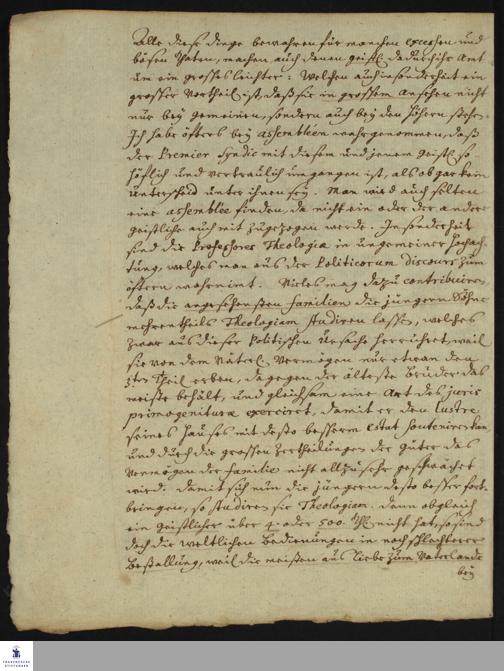 Alle diese dinge bewahren für manchen excessen und
bösen thaten, machen auch denen geistl. dadurch ihr amt
um ein grosses leichter: Welchen auch insonderheit ein
grosser Vortheil ist, daß sie in grossem ansehen nicht
nur bey gemeinen, sondern auch bey den Höhern stehen.
Ich habe öfters bey assembleen wahrgenommen, daß
der Premier Syndic mit diesem und jenem Geistl. so
höflich und vertraulich umgangen ist, als ob gar kein
unterscheid unter ihnen sey. Man wird auch selten
eine assemblée finden, da nicht ein oder der andere
geistliche auch mit zugezogen werde. Insonderheit
sind die Professores Theologiae in ungemeiner Hochach-
tung, welches man aus der Politicorum Discours zum
öftern wahrnimt. Vieles mag dazu contribuiren,
daß die angesehensten familien die jüngern Söhne
mehrentheils Theologiam studiren lassen, welches
zwar aus dieser Politischen Ursache herrühret, weil
sie von dem Väterl. Vermögen nur etwan den
Theil erben, dagegen der älteste Bruder das
meiste behält, und gleichsam eine Art des juris
primogeniturae exerciret, damit er den Lustre
seines Hauses mit desto besserm estat souteniren kan
und durch die grossen Zertheilungen der Güter das
Vermögen der familie nicht allzusehr geschwächet
wird. Damit sich nun die jüngern desto besser fort-
bringen, so studiren sie Theologiam. Denn obgleich
ein Geistlicher über 4. oder 500. nicht hat, so sind
doch die weltlichen Bedienungen in noch schlechterer
Bestallung, weil die meisten aus Liebe zum Vaterlande
bey
FRANCKESCHE
STIFTUNGEN